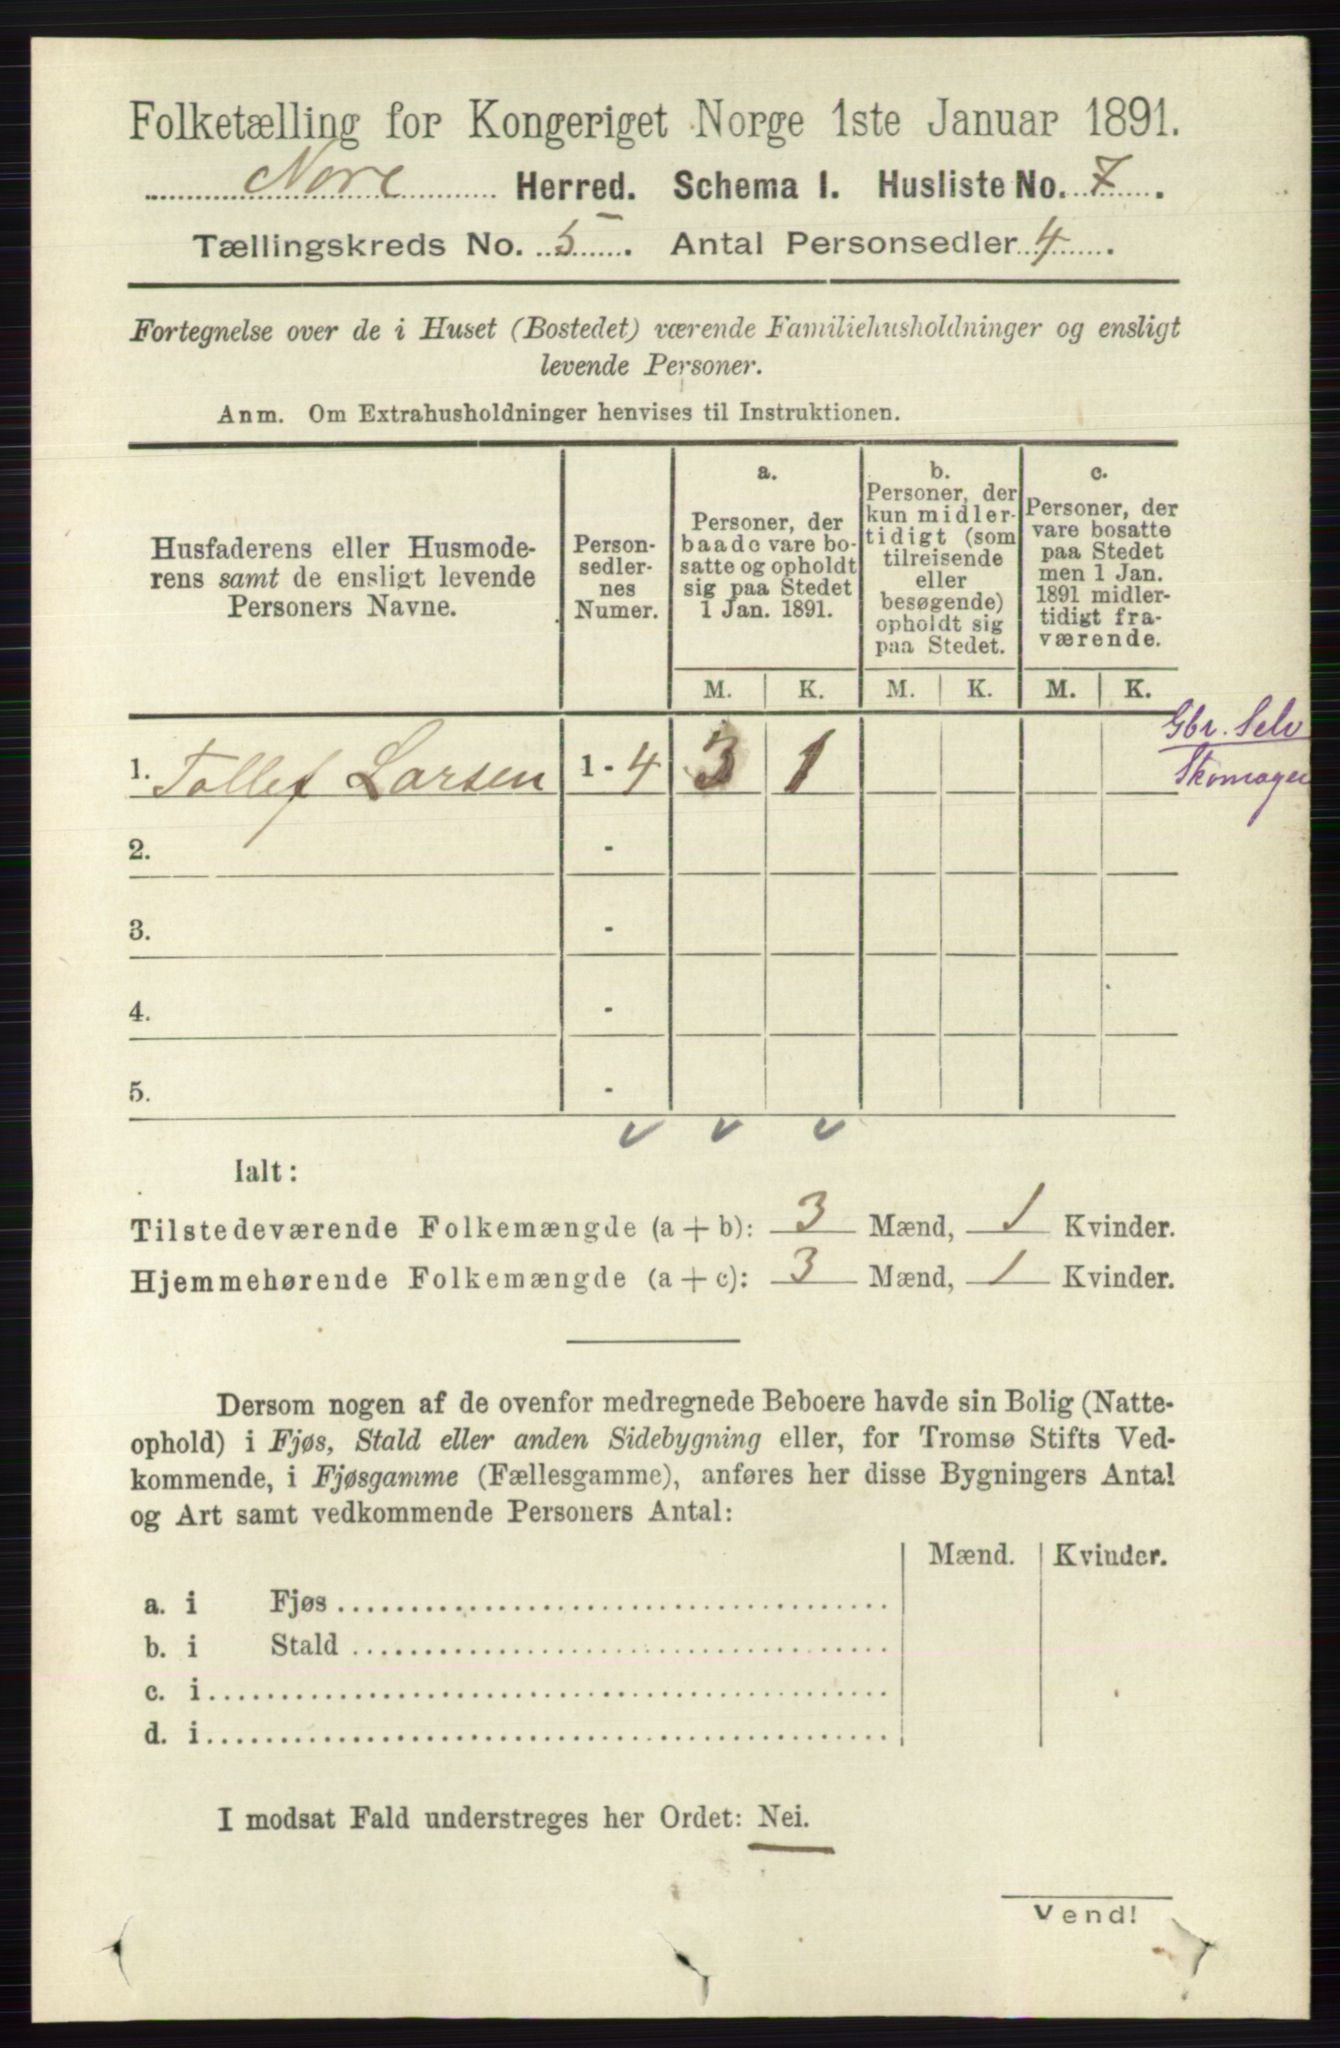 Folketælling for Kongeriget Norge 1ste Januar 1891.
Nore Herred. Schema I. Husliste No. 7.
Tællingskreds No. 5. Antal Personsedler 4.
Fortegnelse over de i Huset (Bostedet) værende Familiehusholdninger og ensligt
levende Personer.
Anm. Om Extrahusholdninger henvises til Instruktionen.
Husfaderens eller Husmode-
rens samt de ensligt levende
Personers Navne.
Person-
sedler-
nes
Numer.
a.
Personer, der
baade vare bo-
satte og opholdt
sig paa Stedet
1 Jan. 1891.
b.
Personer, der
kun midler-
tidigt (som
tilreisende
eller
besøgende)
opholdt sig
paa Stedet.
c.
Personer, der
vare bosatte
paa Stedet
men 1 Jan.
1891 midler-
tidigt fra-
værende.
M. K. M. K. M. K.
Gbr. Selv
Skomager
1. Tollef Larsen 1 - 4 3 1
2. -
3. -
4. -
5. -
Ialt:
Tilstedeværende Folkemængde (a + b): 3 Mænd, 1 Kvinder.
Hjemmehørende Folkemængde (a + c): 3 Mænd, 1 Kvinder.
Dersom nogen af de ovenfor medregnede Beboere havde sin Bolig (Natte-
ophold) i Fjøs, Stald eller anden Sidebygning eller, for Tromsø Stifts Ved-
kommende, i Fjøsgamme (Fællesgamme), anføres her disse Bygningers Antal
og Art samt vedkommende Personers Antal:
Mænd. Kvinder.
a. i Fjøs
b. i Stald
c. i
d. i
I modsat Fald understreges her Ordet: Nei.
Vend!